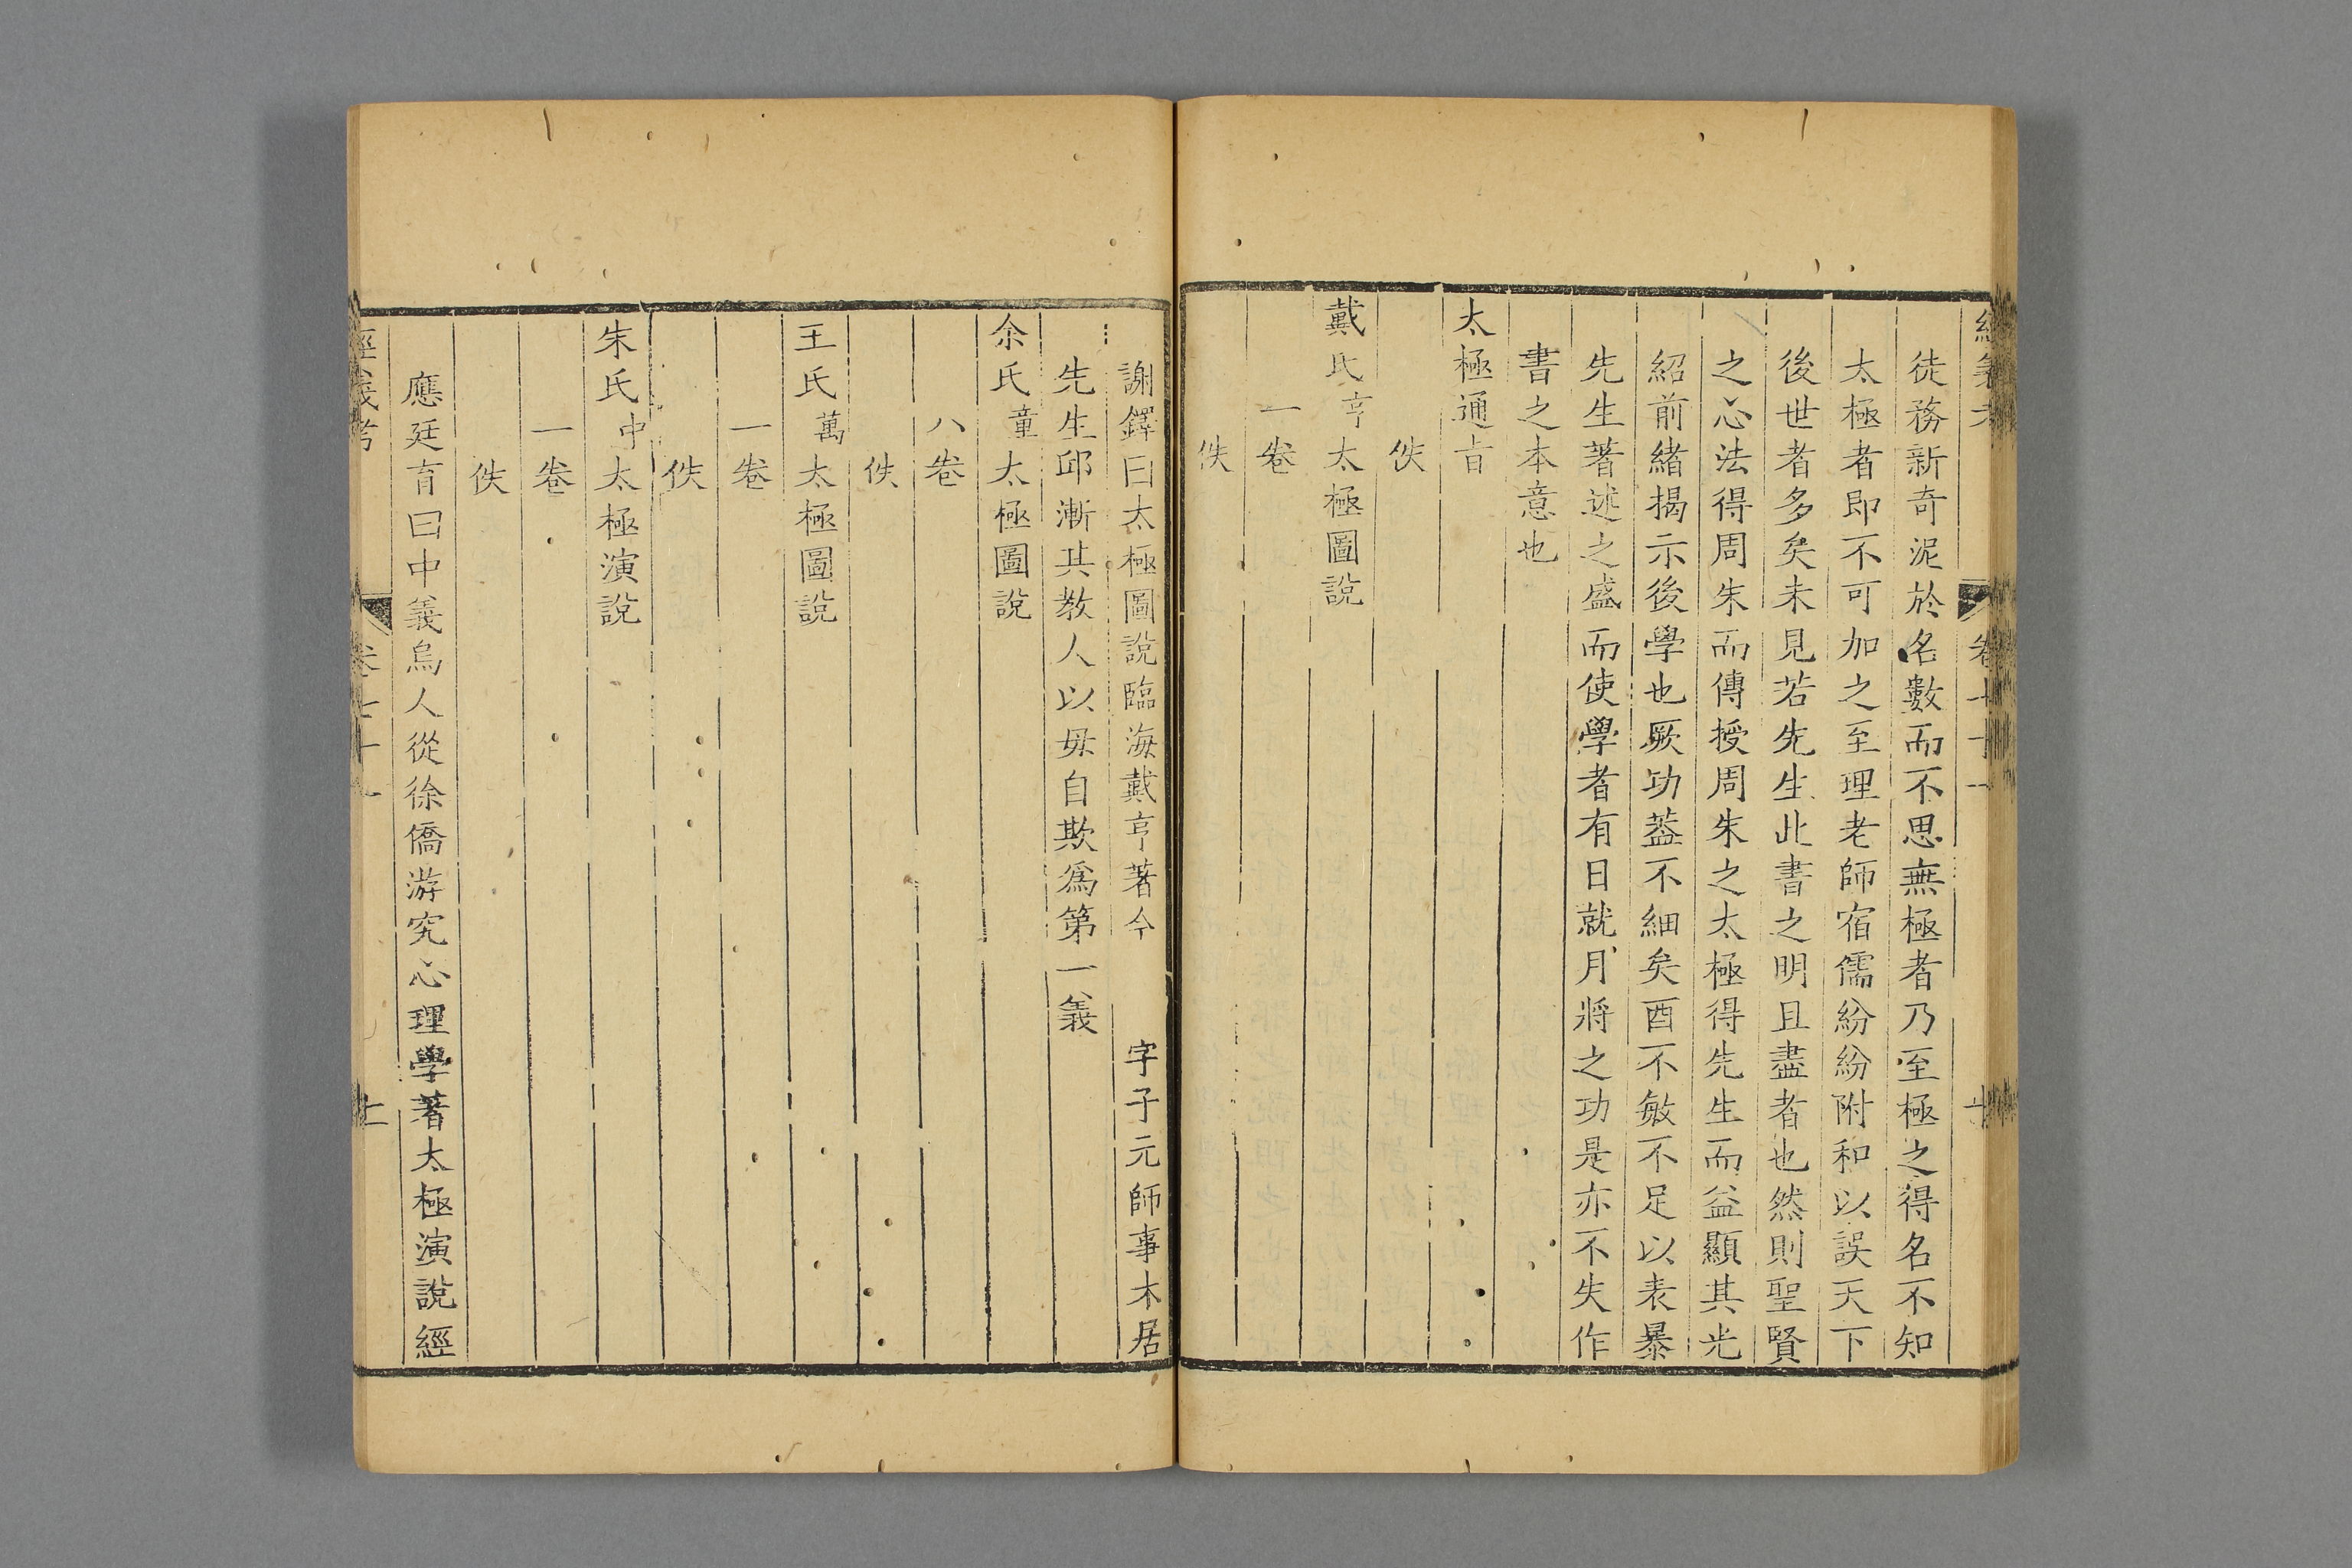 徒務新奇泥於名數而不思無極者乃至極之得名不知
太極者即不可加之至理老師宿儒紛紛附和以誤天下
後世者多矣未見若先生此書之明且盡者也然則聖賢
之心法得周朱而傳授周朱之太極得先生而益顯其光
紹前緒揭示後學也厥功葢不細矣酉不敏不足以表暴
先生著述之盛而使學者有日就月將之功是亦不失作
書之本意也
太極通旨
佚
戴氏亨太極圖說
一卷
佚
謝鐸曰太極圖說臨海戴亨著今字子元師事木居
先生邱漸其教人以毋自欺爲第一義
余氏童太極圖說
八卷
佚
王氏萬太極圖說
一卷
佚
朱氏中太極演說
一卷
佚
應廷育曰中義烏人從徐僑游究心理學著太極演說經
經義考 卷七十一